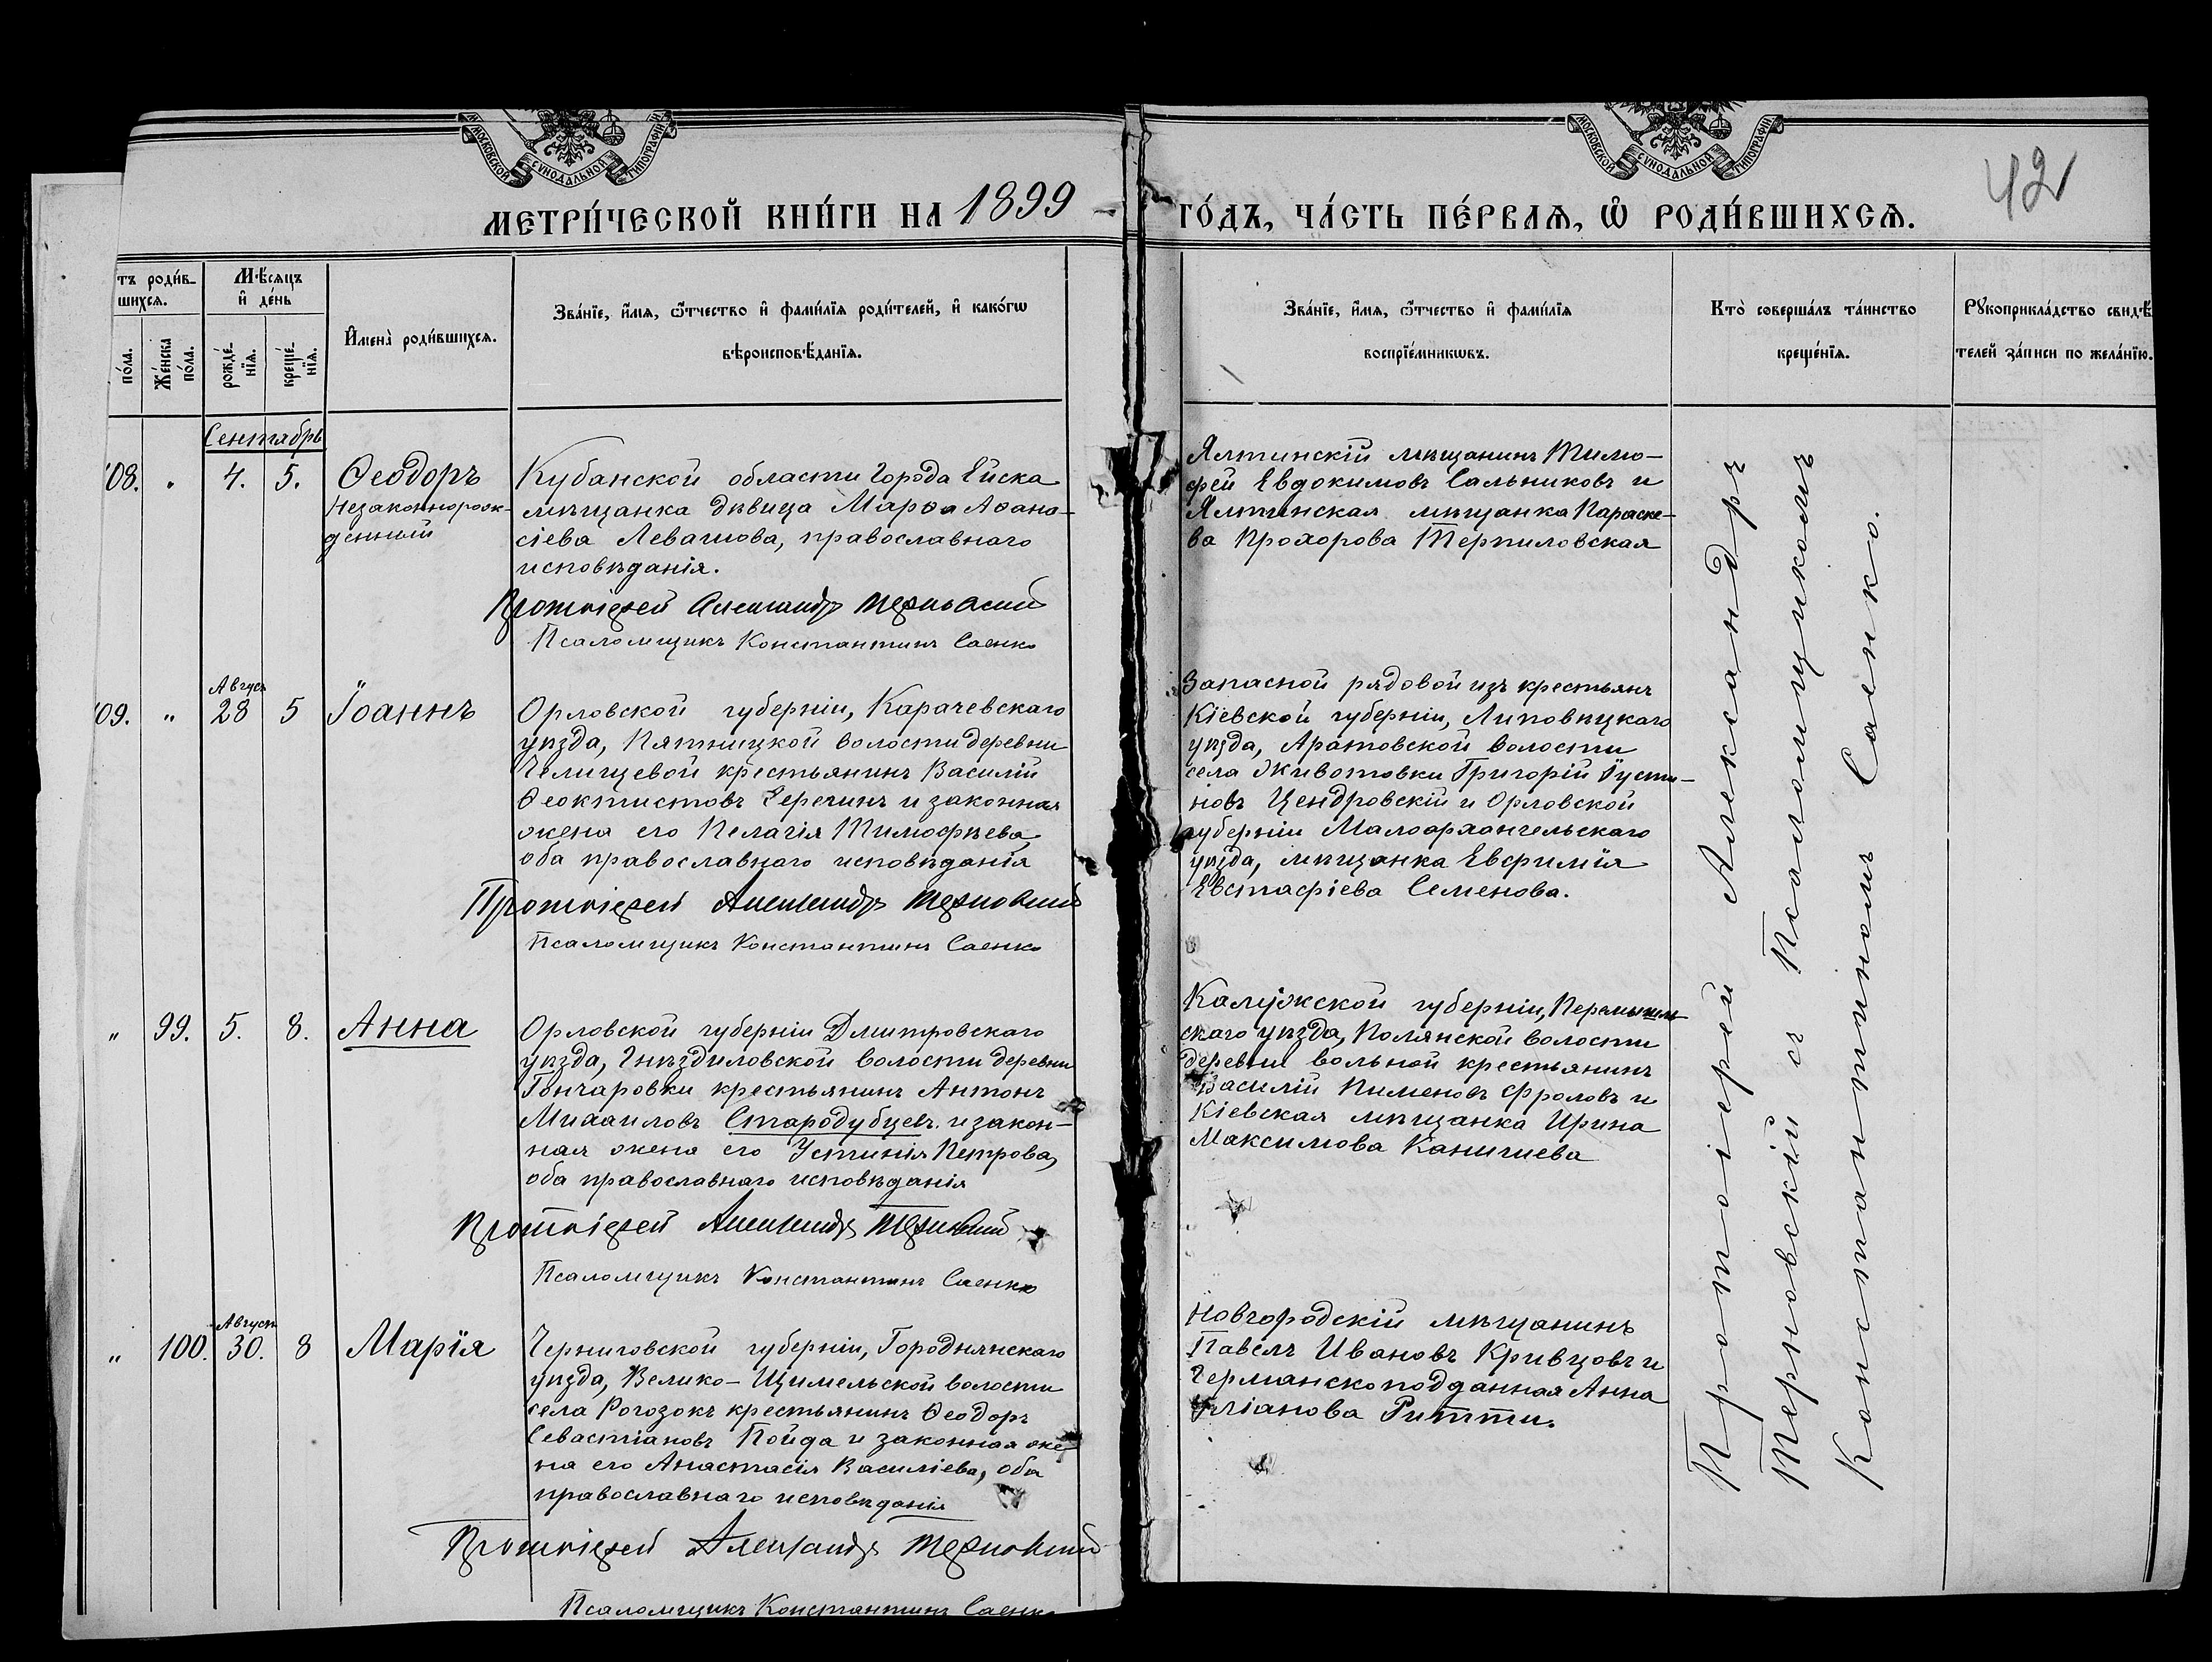 МОСКОВСКОЙ СУНОДАЛЬНОЙ ТИПОГРАФІИ
МОСКОВСКОЙ СУНОДАЛЬНОЙ ТИПОГРАФІИ
42
МЕТРИ́ЧЕСКОЙ КНИ́ГИ НА 1899 ГО́ДЪ, ЧА́СТЬ ПЕ́РВАѦ, Ѡ҆ РОДИ́ВШИХСѦ.
тъ роди́в-
шихсѧ.
Мѣ́сѧцъ
и҆ де́нь
по́ла.
Же́нска
по́ла.
рожде́-
нїѧ.
креще́-
нїѧ.
И҆мена̀ роди́вшихсѧ.
Зва́нїе, и҆́мѧ, ѻ҆́тчество и҆ фами́лїѧ роди́телей, и҆ како́гѡ
вѣроисповѣ́данїѧ.
Зва́нїе, и҆́мѧ, ѻ҆́тчество и҆ фами́лїѧ
воспрїе́мникѡвъ.
Кто̀ соверша́лъ та́инство
креще́нїѧ.
Рꙋкоприкла́дство свидѣ́
телей за́писи по жела́нїю.
Сентябрь
08. „ 4. 5. Ѳеодоръ
Незаконнорож-
денный
Кубанской области города Ейска
мѣщанка дѣвица Марѳа Аѳана-
сіева Левашова, православнаго
исповѣданія.
Протоіерей Александръ Терновскій
Псаломщикъ Константинъ Саенко
Ялтинскій мѣщанинъ Тимо-
фей Евдокимовъ Сальниковъ и
Ялтинская мѣщанка Параске-
ва Прохорова Терпиловская
Август
09. „ 28 5 Іоаннъ
Орловской губерніи, Карачевскаго
уѣзда, Пятницкой волости деревни
Челищевой крестьянинъ Василій
Ѳеоктистовъ Черечинъ и законная
жена его Пелагія Тимофѣева,
оба православнаго исповѣданія
Протоіерей Александръ Терновскій
Псаломщикъ Константинъ Саенко
Запасной рядовой изъ крестьянъ
Кіевской губерніи, Липовѣцкаго
уѣзда, Аратовской волости
села Животовки Григорій Іусти-
новъ Цендровскій и Орловской
губерніи Малоархангельскаго
уѣзда, мѣщанка Евфимія
Евстафіева Семенова.
„ 99. 5. 8. Анна
Орловской губерніи Дмитровскаго
уѣзда, Гнѣздиловской волости деревни
Гончаровки крестьянинъ Антонъ
Михаиловъ Стародубцевъ и закон-
ная жена его Устинія Петрова,
оба православнаго исповѣданія
Протоіерей Александръ Терновскій
Псаломщикъ Константинъ Саенко
Калужской губерніи, Перемышль-
скаго уѣзда, Полянской волости
деревни вольной крестьянинъ
Василій Пименовъ Фроловъ и
Кіевская мѣщанка Ирина
Максимова Канишева
Августъ
„ 100. 30. 8 Марія
Черниговской губерніи, Городнянскаго
уѣзда, Велико-Щимельской волости
села Рогозокъ крестьянинъ Ѳеодоръ
Севастіановъ Пойда и законная же-
на его Анастасія Василіева, оба
православнаго исповѣданія
Протоіерей Александръ Терновскій
Псаломщикъ Константинъ Саенко
Новгородскій мѣщанинъ
Павелъ Ивановъ Кривцовъ и
Германскоподданная Анна
Юліанова Ритти.
Протоіерей Александръ
Терновскій съ Псаломщикомъ
Константиномъ Саенко.